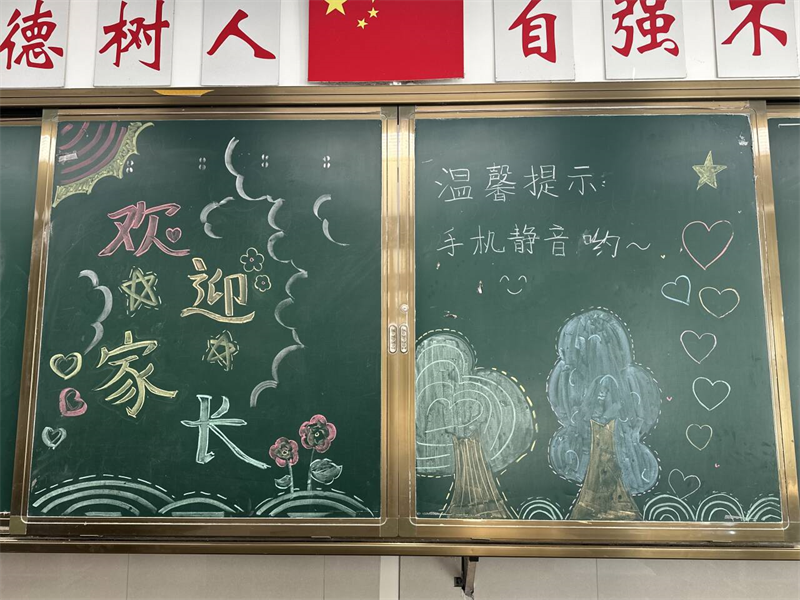 德树人
自强不
欢迎
家长
温馨提示:
手机静音哟~